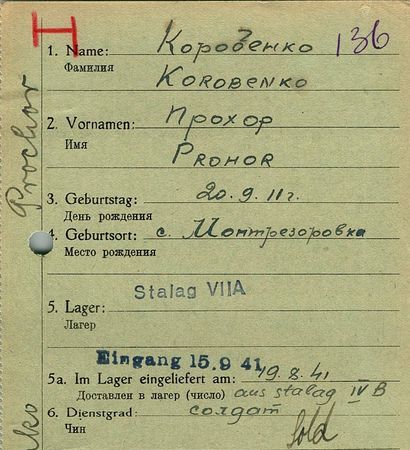 H
1. Name: Коробенко 136
Фамилия
KOROBENKO
2. Vornamen: Прохор
Имя
PROHOR
3. Geburtstag: 20.9.11г.
День рождения
4. Geburtsort: с. Монтрезоровка
Место рождения
Stalag VIIA
5. Lager:
Лагер
Eingang 15.9 41
5a. Im Lager eingeliefert am: 19.8.41
Доставлен в лагер (число) aus stalag IV B
6. Dienstgrad: солдат
Чин Sold
Prochor
ko